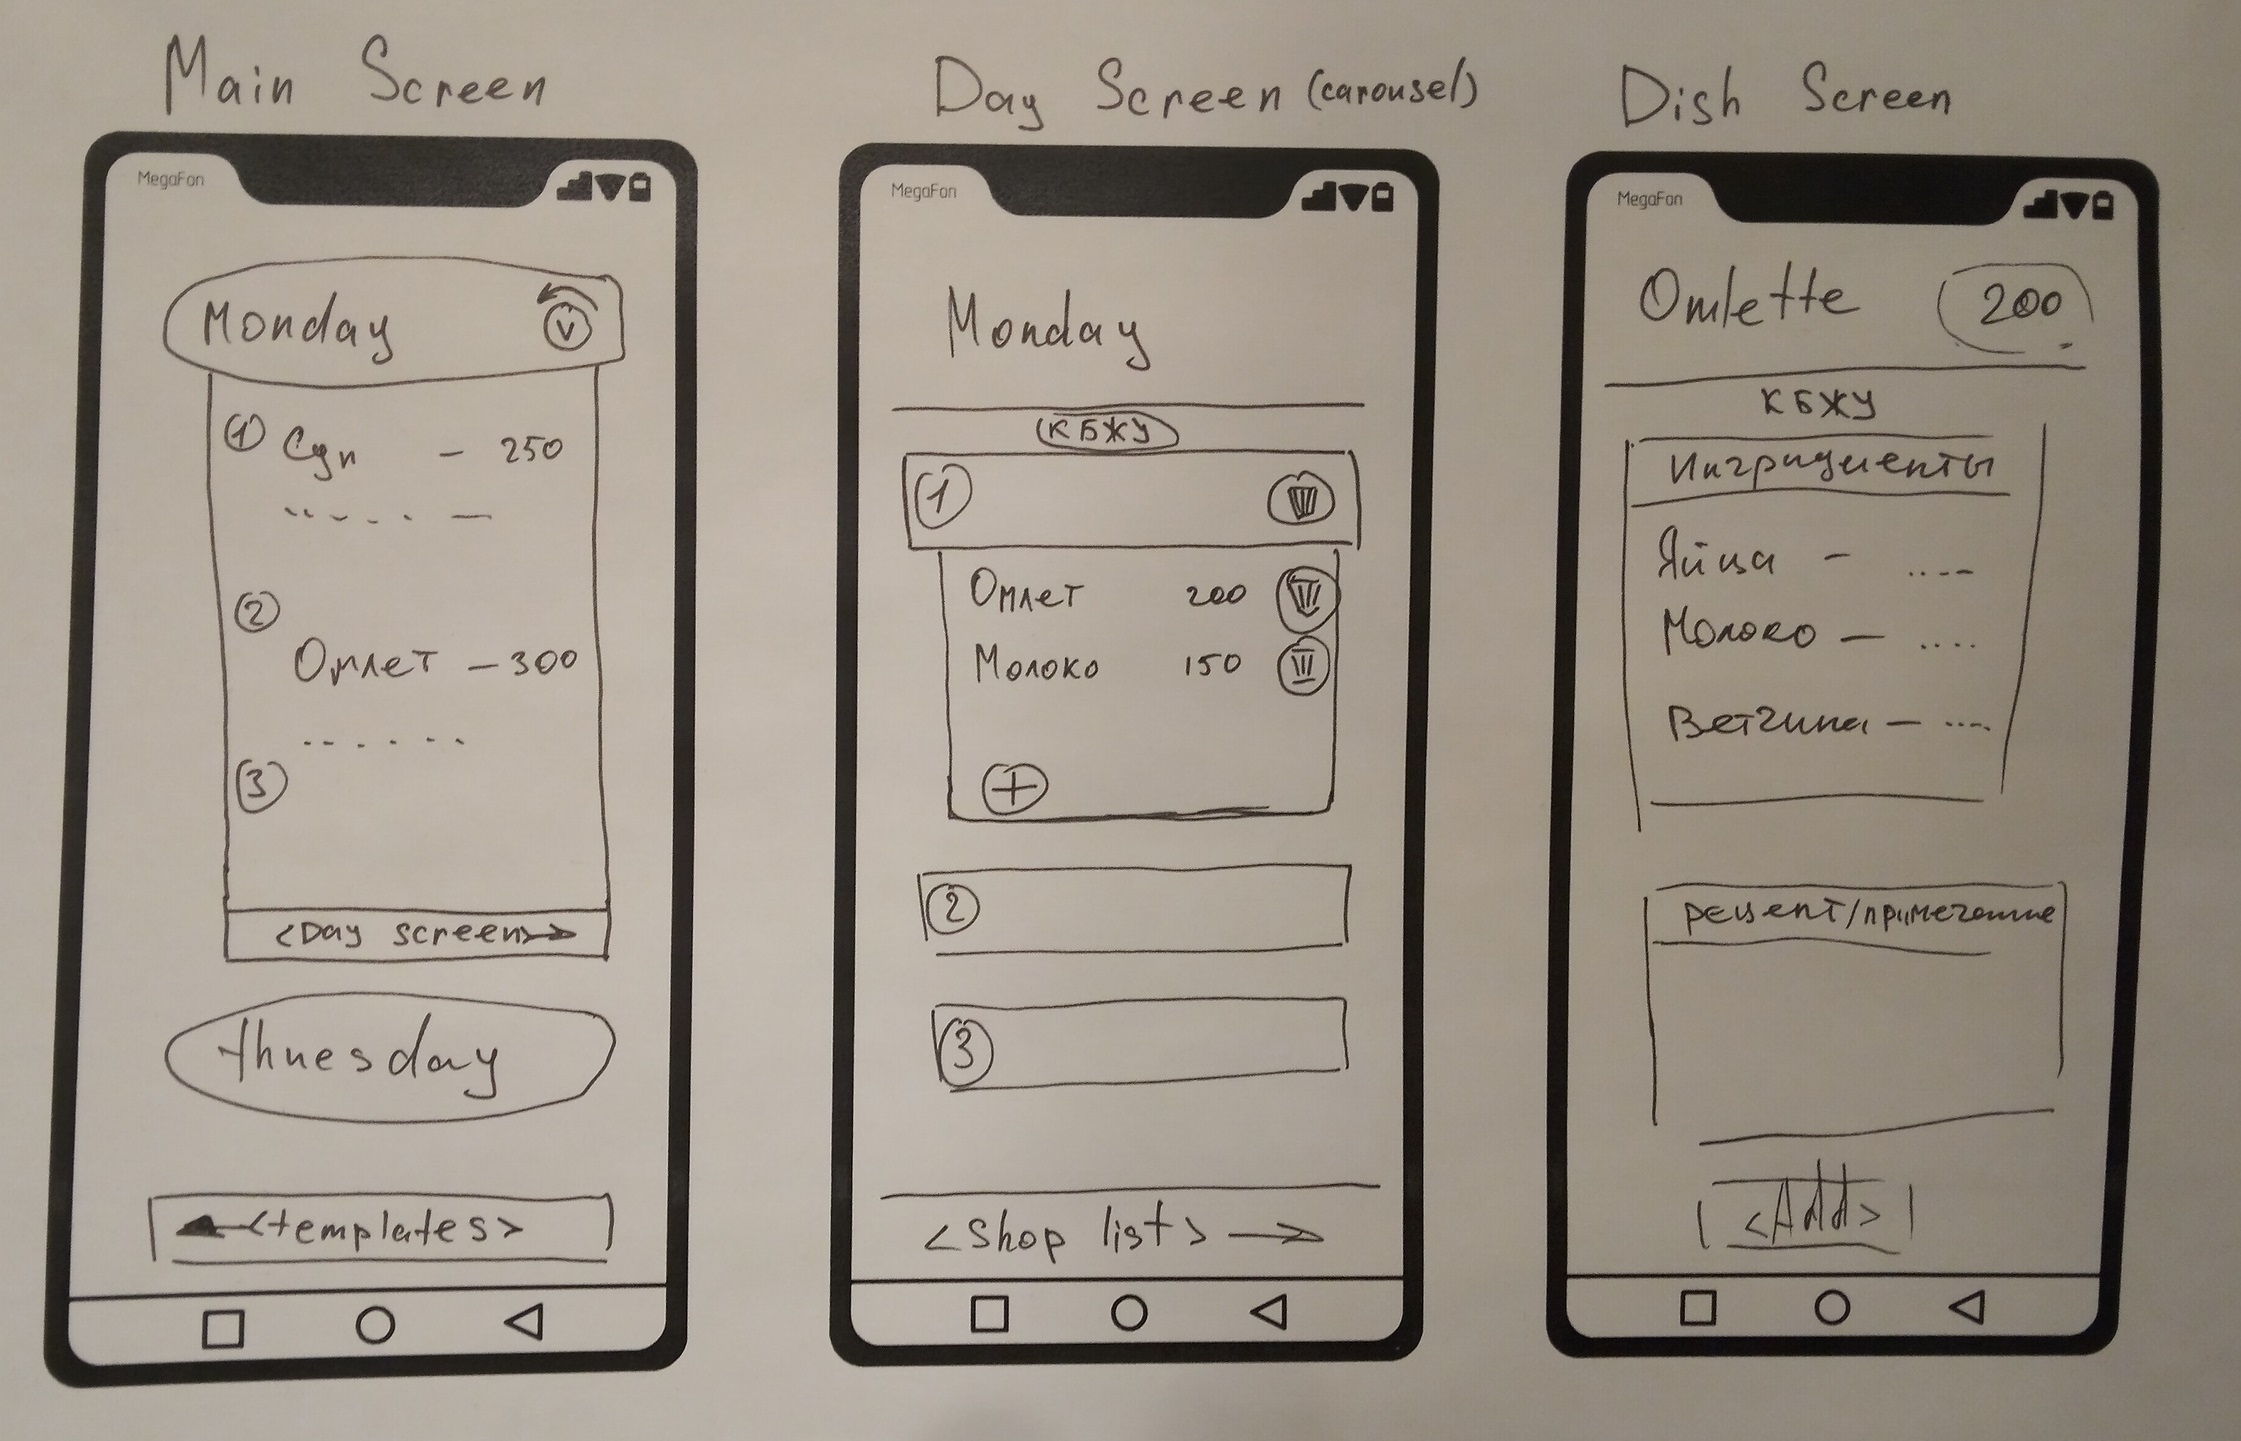 Main Screen
MegaFon
Monday
V
1 Суп - 250
2
Омлет - 300
3
<Day screen>
thuesday
<templates>
Day Screen (carousel)
MegaFon
Monday
КБЖУ
1
Омлет 200
Молоко 150
+
2
3
<Shop list>
Dish Screen
MegaFon
Omlette 200
КБЖУ
Ингридиенты
Яйца -
Молоко -
Ветчина -
рецепт/примечание
<Add>